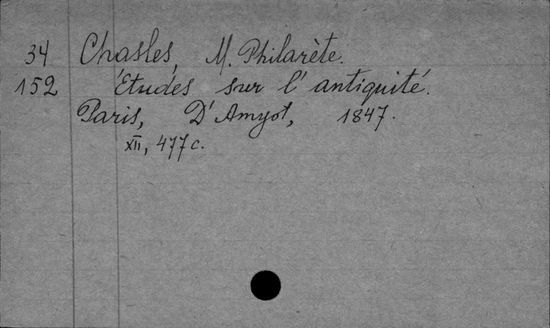 34 Chasles, M. Philarète.
152 Études sur l'antiquité.
Paris, D'Amyot, 1847.
XII, 477 c.